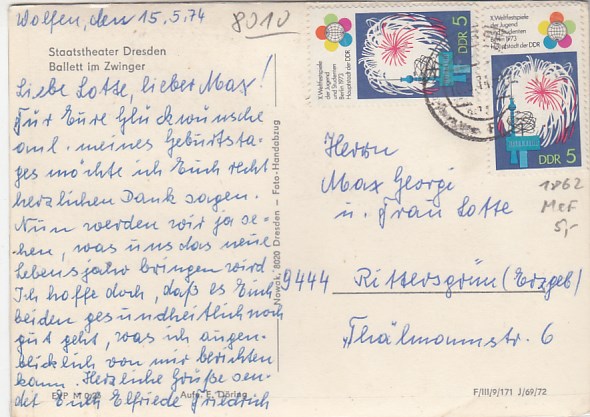 Wolfen, den 15.5.74
8010
Staatstheater Dresden
Ballett im Zwinger
Liebe Lotte, lieber Max!
Für Eure Glückwünsche
anl. meines Geburtsta-
ges möchte ich Euch recht
herzlichen Dank sagen.
Nun werden wir ja se-
hen, was uns das neue
Lebensjahr bringen wird.
Ich hoffe doch, daß es Euch
beiden gesundheitlich noch
gut geht, was ich augen-
blicklich von mir berichten
kann. Herzliche Grüße sen-
det Euch Elfriede Friedrich
Aufn. E. Döring
Nowak, 8020 Dresden – Foto-Handabzug
X. Weltfestspiele
der Jugend
und Studenten
Berlin 1973
Hauptstadt der DDR
DDR 5
X. Weltfestspiele
der Jugend
und Studenten
Berlin 1973
Hauptstadt der DDR
DDR 5
Herrn
Max Georgi
u. Frau Lotte
1862
MeF
5,-
9444 Rittersgrün (Erzgeb)
Thälmannstr. 6
F/III/9/171 J/69/72